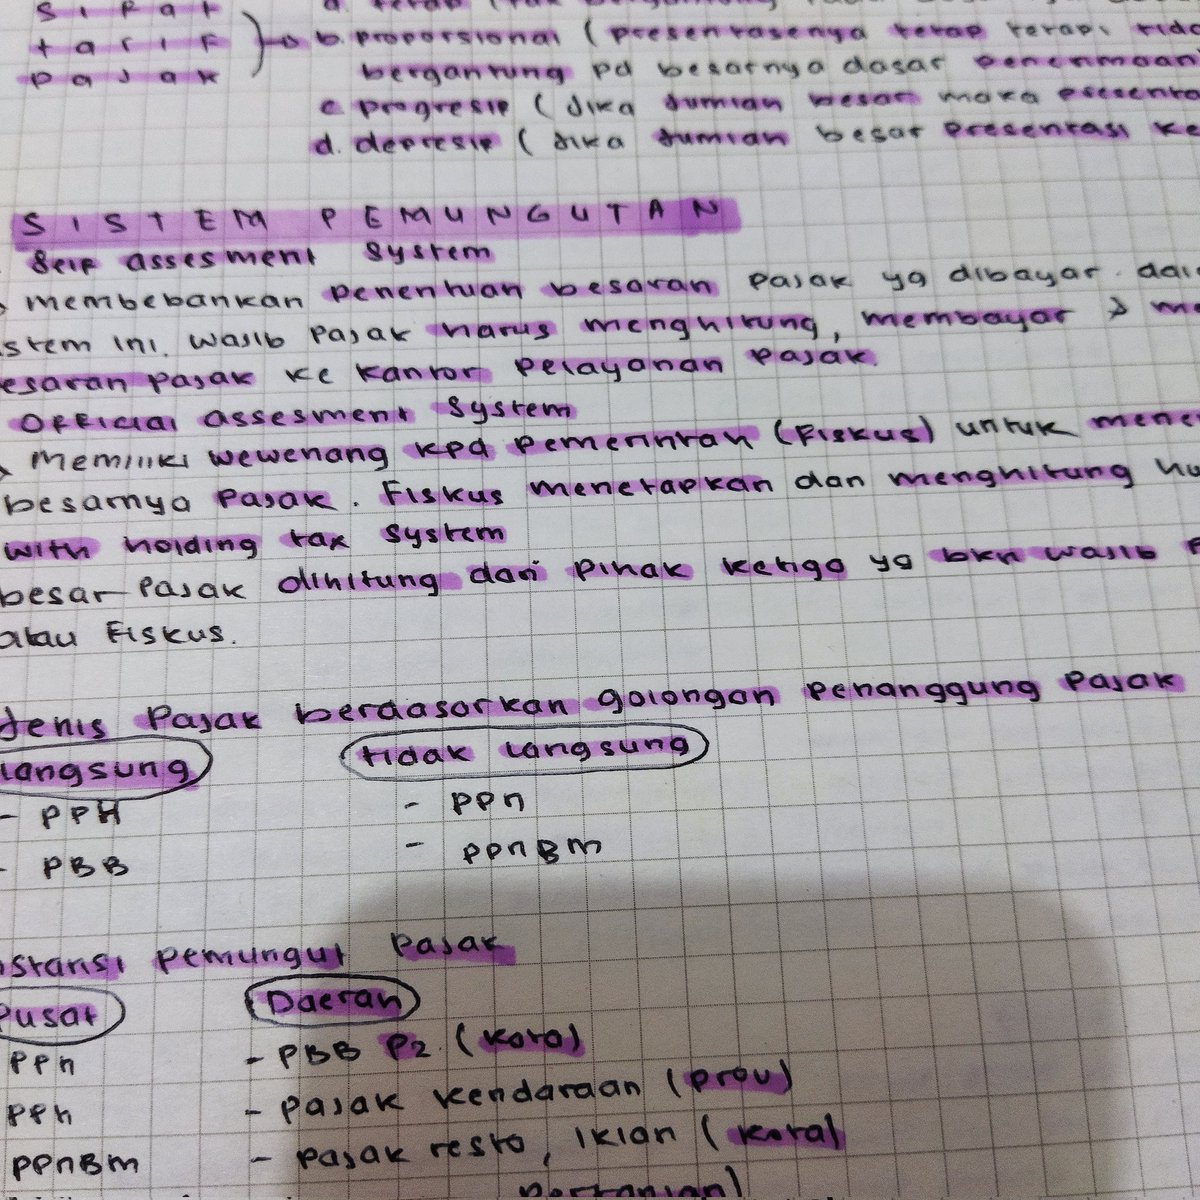 sifat
tarif
pajak
a. tetap (tak
b. proporsional (presentasenya tetap tetapi tida
bergantung pd besarnya dasar penerimaan
c progresif (jika jumlah besar maka presenta
d. depresif (jika jumlah besar presentasi ke
SISTEM PEMUNGUTAN
Self assesment system
membebankan penentuan besaran pajak yg dibayar. dal
stem ini. wajib pajak harus menghitung, membayar & m
esaran pajak ke kantor pelayanan pajak.
Official assesment system
Memiliki wewenang kpd pemerintah (Fiskus) untuk mene
besarnya pajak. Fiskus menetapkan dan menghitung hu
with holding tax system
besar pajak dihitung dari pihak ketiga yg bkn wajib P
atau Fiskus.
Jenis Pajak berdasarkan golongan penanggung pajak
langsung tidak langsung
- PPH - PPn
- PBB - PPnBM
nstansi pemungut pajak
Pusat Daerah
PPn - PBB P2. (kota)
PPh - pajak kendaraan (prov)
PPnBM - pajak resto, iklan (kota)
pertanian)